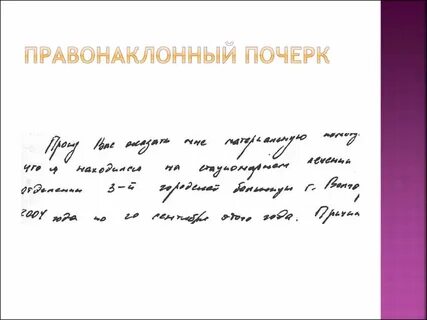 ПРАВОНАКЛОННЫЙ ПОЧЕРК
Прошу Вас оказать мне материальную помощь
что я находился на стационарном лечении
отделении 3-й городской больницы г. Волго
2004 года по 20 сентября этого года. Причин